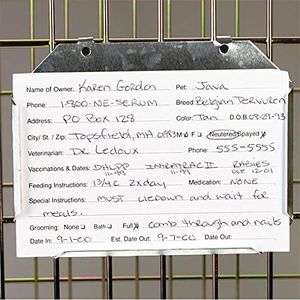 Name of Owner: Karen Gordon Pet: Java
Phone: 1-800-NE-SERUM Breed: Belgian Tervuren
Address: PO Box 128 Color: Tan D.O.B.: 08-21-93
City/ St. / Zip: Topsfield, MA 01983 M F Neutered Spayed
Veterinarian: Dr. Ledoux Phone: 555-5555
Vaccinations & Dates: DHLPP 11-99 INTRATRAC II 11-99 RABIES DUE 12-01
Feeding Instructions: 1 3/4 C 2x day Medication: NONE
Special Instructions: MUST lie down and wait for
meals.
Grooming: None Bath Full comb through and nails
Date In: 9-1-00 Est. Date Out: 9-7-00 Date Out: